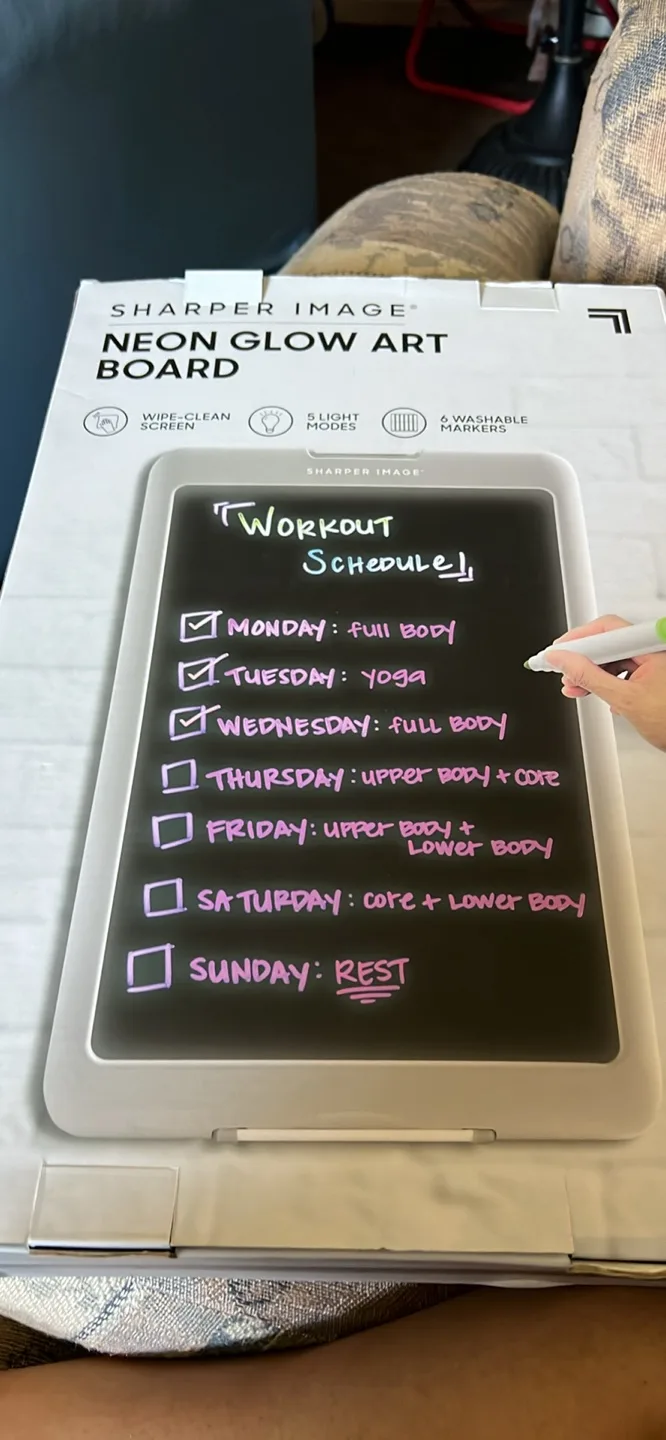 SHARPER IMAGE®
NEON GLOW ART
BOARD
WIPE-CLEAN
SCREEN
5 LIGHT
MODES
6 WASHABLE
MARKERS
SHARPER IMAGE®
「WORKOUT
SCHEDULE」
MONDAY: full BODY
TUESDAY: yoga
WEDNESDAY: full BODY
THURSDAY: upper BODY + core
FRIDAY: upper BODY +
Lower BODY
SATURDAY: core + Lower BODY
SUNDAY: REST